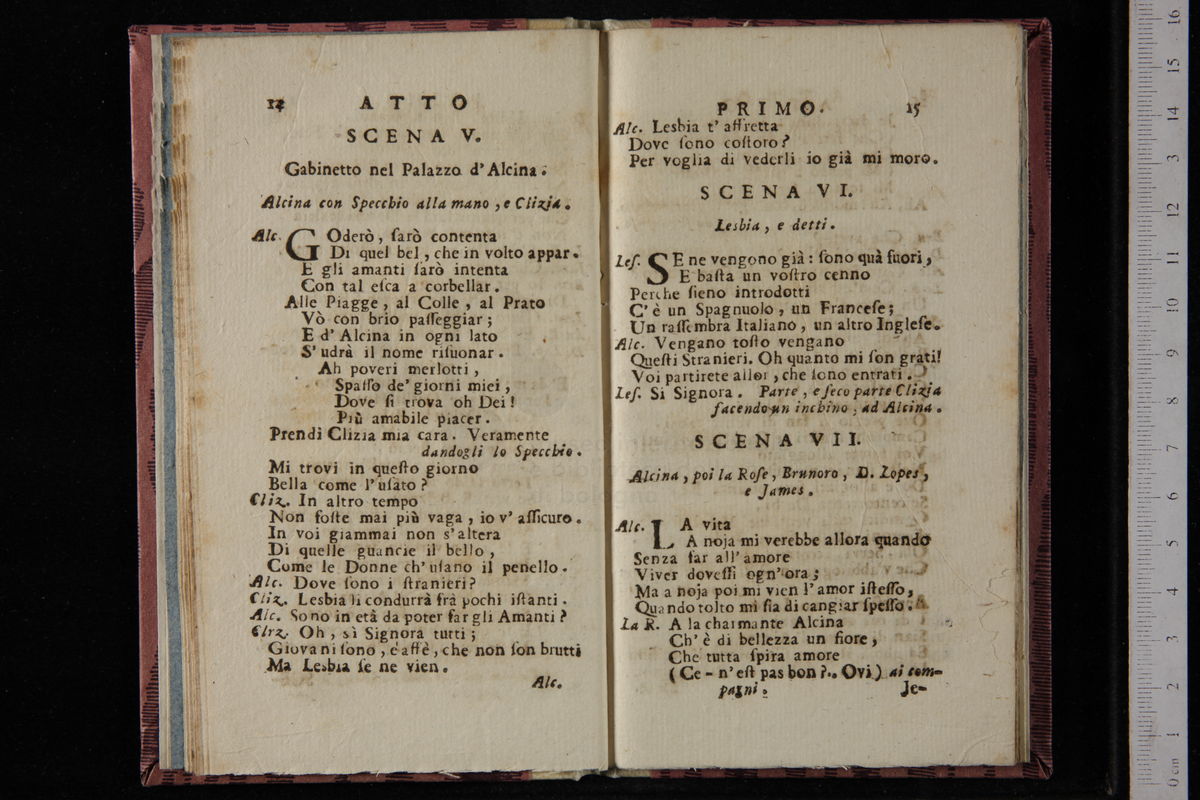 14 ATTO
SCENA V.
Gabinetto nel Palazzo d'Alcina.
Alcina con Specchio alla mano, e Clizia.
Alc. GOderò, ſarò contenta
Di quel bel, che in volto appar.
E gli amanti ſarò intenta
Con tal eſca a corbellar.
Alle Piagge, al Colle, al Prato
Vò con brio paſſeggiar;
E d'Alcina in ogni lato
S'udrà il nome riſuonar.
Ah poveri merlotti,
Spaſſo de' giorni miei,
Dove ſi trova oh Dei!
Più amabile piacer.
Prendi Clizia mia cara. Veramente
dandogli lo Specchio.
Mi trovi in queſto giorno
Bella come l'uſato?
Cliz. In altro tempo
Non foſte mai più vaga, io v'aſſicuro.
In voi giammai non s'altera
Di quelle guancie il bello,
Come le Donne ch'uſano il penello.
Alc. Dove ſono i ſtranieri?
Cliz. Lesbia li condurrà frà pochi iſtanti.
Alc. Sono in età da poter far gli Amanti?
Clrz. Oh, sì Signora tutti;
Giovani ſono, e affè, che non ſon brutti
Ma Lesbia ſe ne vien.
Alc.
PRIMO. 15
Alc. Lesbia t'affretta
Dove ſono coſtoro?
Per voglia di vederli io già mi moro.
SCENA VI.
Lesbia, e detti.
Leſ. SE ne vengono già: ſono quà fuori,
E baſta un voſtro cenno
Perche ſieno introdotti
C'è un Spagnuolo, un Franceſe;
Un raſſembra Italiano, un altro Ingleſe.
Alc. Vengano toſto vengano
Queſti Stranieri. Oh quanto mi ſon grati!
Voi partirete allor, che ſono entrati.
Leſ. Si Signora. Parte, e ſeco parte Clizia
facendo un inchino, ad Alcina.
SCENA VII.
Alcina, poi la Roſe, Brunoro, D. Lopes,
e James.
Alc. LA vita
A noja mi verebbe allora quando
Senza far all'amore
Viver doveſſi ogn'ora;
Ma a noja poi mi vien l'amor iſteſſo,
Quando tolto mi ſia di cangiar ſpeſſo.
la R. A la charmante Alcina
Ch'è di bellezza un fiore,
Che tutta ſpira amore
(Ce-n'eſt pas bon?.. Ovi) ai com-
pagni.
Je-